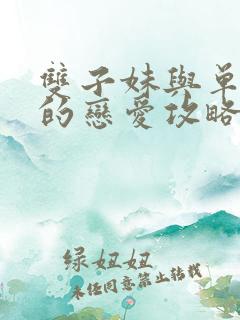 雙子妹與單
的戀愛攻略
绿妞妞
未经同意禁止转载